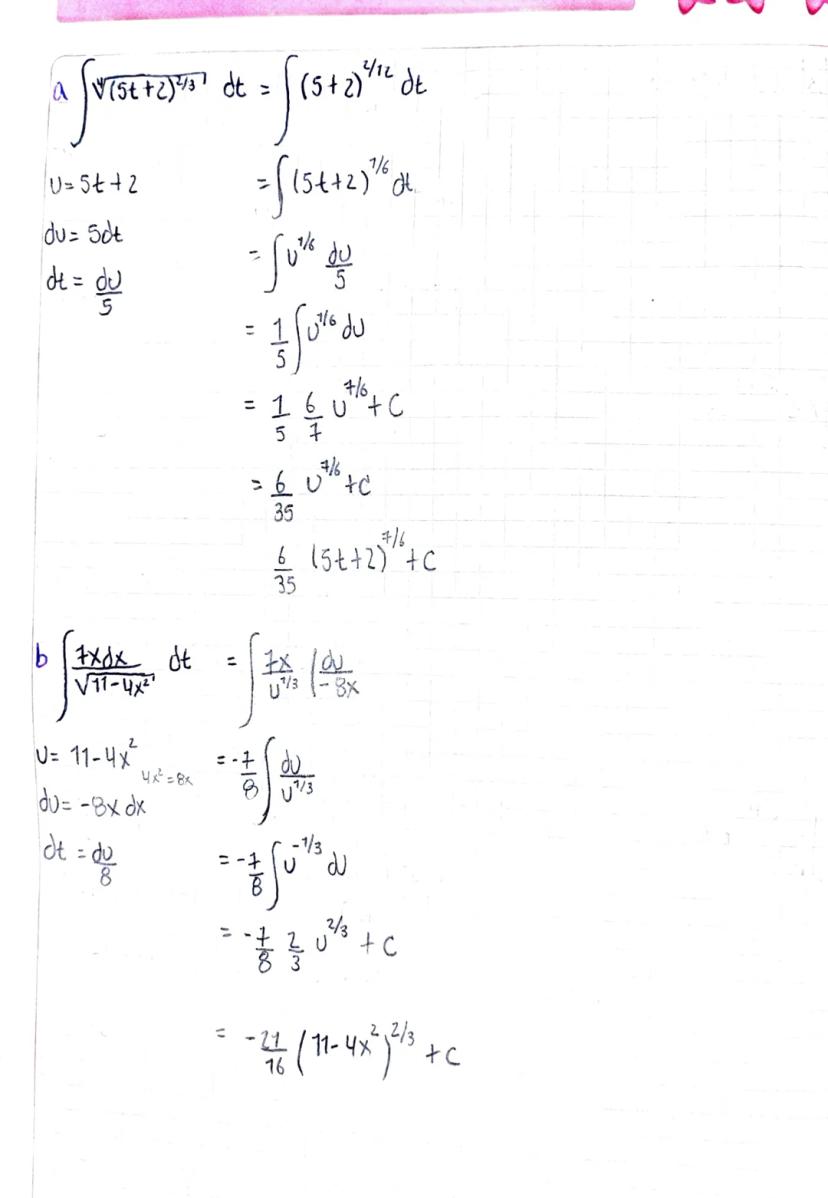 a ∫ ∜((5t+2)^{2/3}) dt = ∫ (5+2)^{2/12} dt
u = 5t+2 = ∫ (5t+2)^{1/6} dt
du = 5dt = ∫ u^{1/6} du/5
dt = du/5
= 1/5 ∫ u^{1/6} du
= 1/5 6/7 u^{7/6} + C
= 6/35 u^{7/6} + C
6/35 (5t+2)^{7/6} + C
b ∫ 7xdx/√(11-4x²) dt = ∫ 7x/u^{1/3} ( du/-8x
u = 11-4x² = -7/8 ∫ du/u^{1/3}
4x² = 8x
du = -8x dx
dt = du/8 = -7/8 ∫ u^{-1/3} du
= -7/8 2/3 u^{2/3} + C
= -21/16 (11-4x²)^{2/3} + C